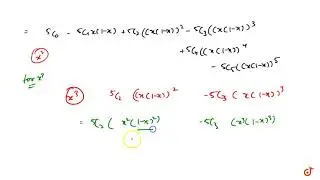 = 5C₀ - 5C₁x(1-x) + 5C₂((x(1-x))² - 5C₃((x(1-x))³
+5C₄((x(1-x))⁴
-5C₅((x(1-x))⁵
x²
for x³
x³ 5C₂ ((x(1-x))² -5C₃ (x(1-x))³
= 5C₂ (x²(1-x)²) -5C₃ (x³(1-x)³)